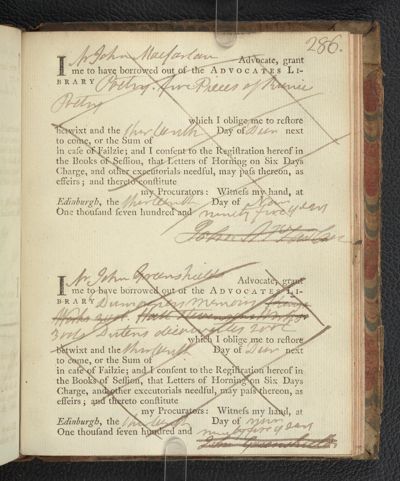 286.
I Mr John Macfarlan Advocate, grant
me to have borrowed out of the ADVOCATES LI-
BRARY Poetry. five Pieces of Runic
Poetry
which I oblige me to reſtore
betwixt and the thirteenth Day of Decr next
to come, or the Sum of
in caſe of Failzie; and I conſent to the Regiſtration hereof in
the Books of Seſſion, that Letters of Horning on Six Days
Charge, and other executorials needful, may paſs thereon, as
effeirs; and thereto conſtitute
my Procurators: Witneſs my hand, at
Edinburgh, the thirteenth Day of Novr
One thouſand ſeven hundred and ninety five years
John Macfarlan
I Mr John Greenshields Advocate, grant
me to have borrowed out of the ADVOCATES LI-
BRARY Memoirs
Works
Dutens
which I oblige me to reſtore
betwixt and the thirteenth Day of Decr next
to come, or the Sum of
in caſe of Failzie; and I conſent to the Regiſtration hereof in
the Books of Seſſion, that Letters of Horning on Six Days
Charge, and other executorials needful, may paſs thereon, as
effeirs; and thereto conſtitute
my Procurators: Witneſs my hand, at
Edinburgh, the thirteenth Day of Novr
One thouſand ſeven hundred and ninety five years
John Greenshields